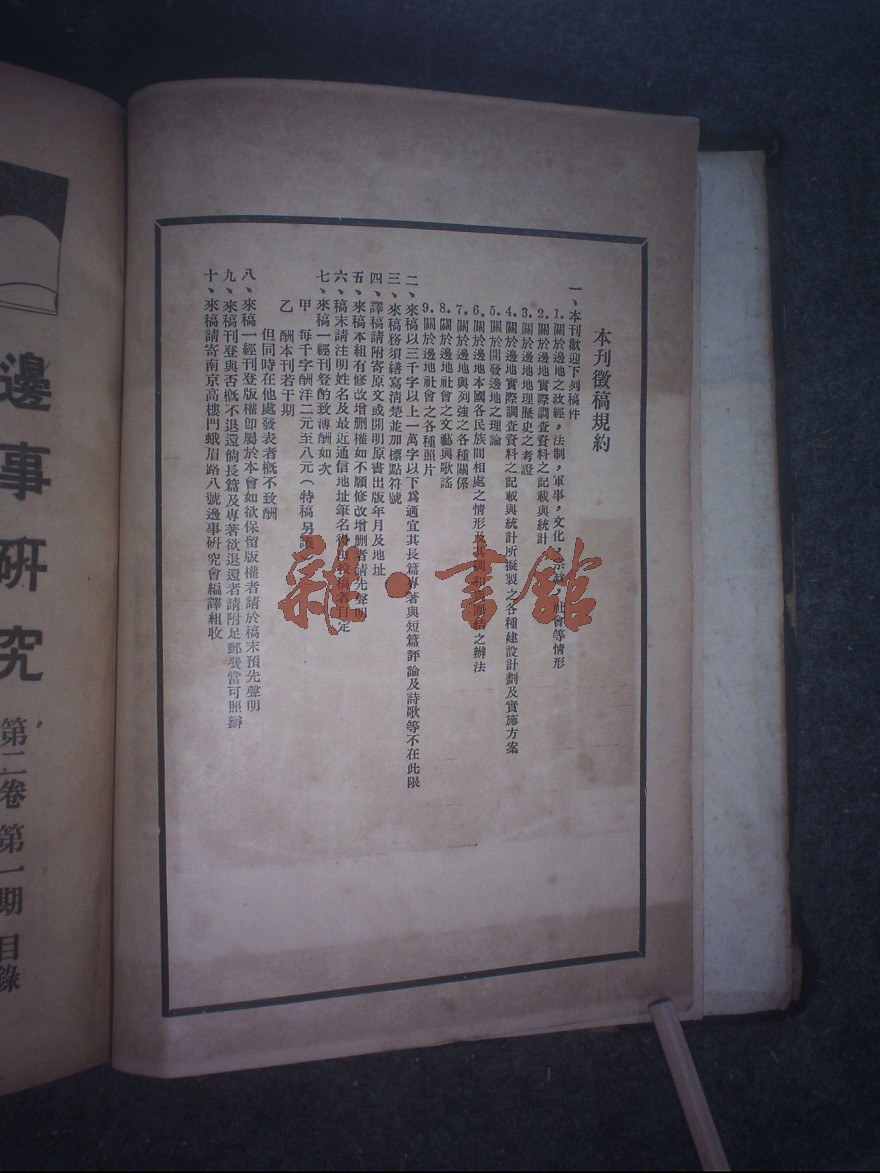 本刊徵稿規約
一、本刊歡迎下列稿件
1.關於邊地之政經，法制，軍事，文化，宗教，社會等情形
2.關於邊地實際調查資料之記載與統計
3.關於邊地地理歷史之考證
4.關於邊地實際調查資料之記載與統計所擬製之各種建設計劃及實施方案
5.關於開發邊地之理論
6.關於邊地本國各民族間相處之情形及其調和與團結之辦法
7.關於邊地與列強之各種關係
8.關於邊地社會之文藝與歌謠
9.關於邊地社會之各種照片
二、來稿以三千字以上一萬字以下爲適宜其長篇專著與短篇評論及詩歌等不在此限
三、來稿務須繕寫清楚並加標點符號
四、譯稿請附寄原文或開明原書出版年月及地址
五、來稿本組有修改增刪權如不願修改增刪者請先聲明
六、稿末請注明姓名及最近通信地址筆名得由投稿者自定
七、來稿一經刊登酌致薄酬如次
甲 每千字酬洋二元至八元（特稿另議
乙 酬本刊若干期
但同時在他處發表者概不致酬
八、來稿一經刊登版權卽屬於本會如欲保留版權者請於稿末預先聲明
九、來稿刊登與否概不退還倘長篇及專著欲退還者請附足郵費當可照辦
十、來稿請寄南京高樓門峨眉路八號邊事研究會編譯組收
邊事研究
第二卷第一期目錄
雜·書館